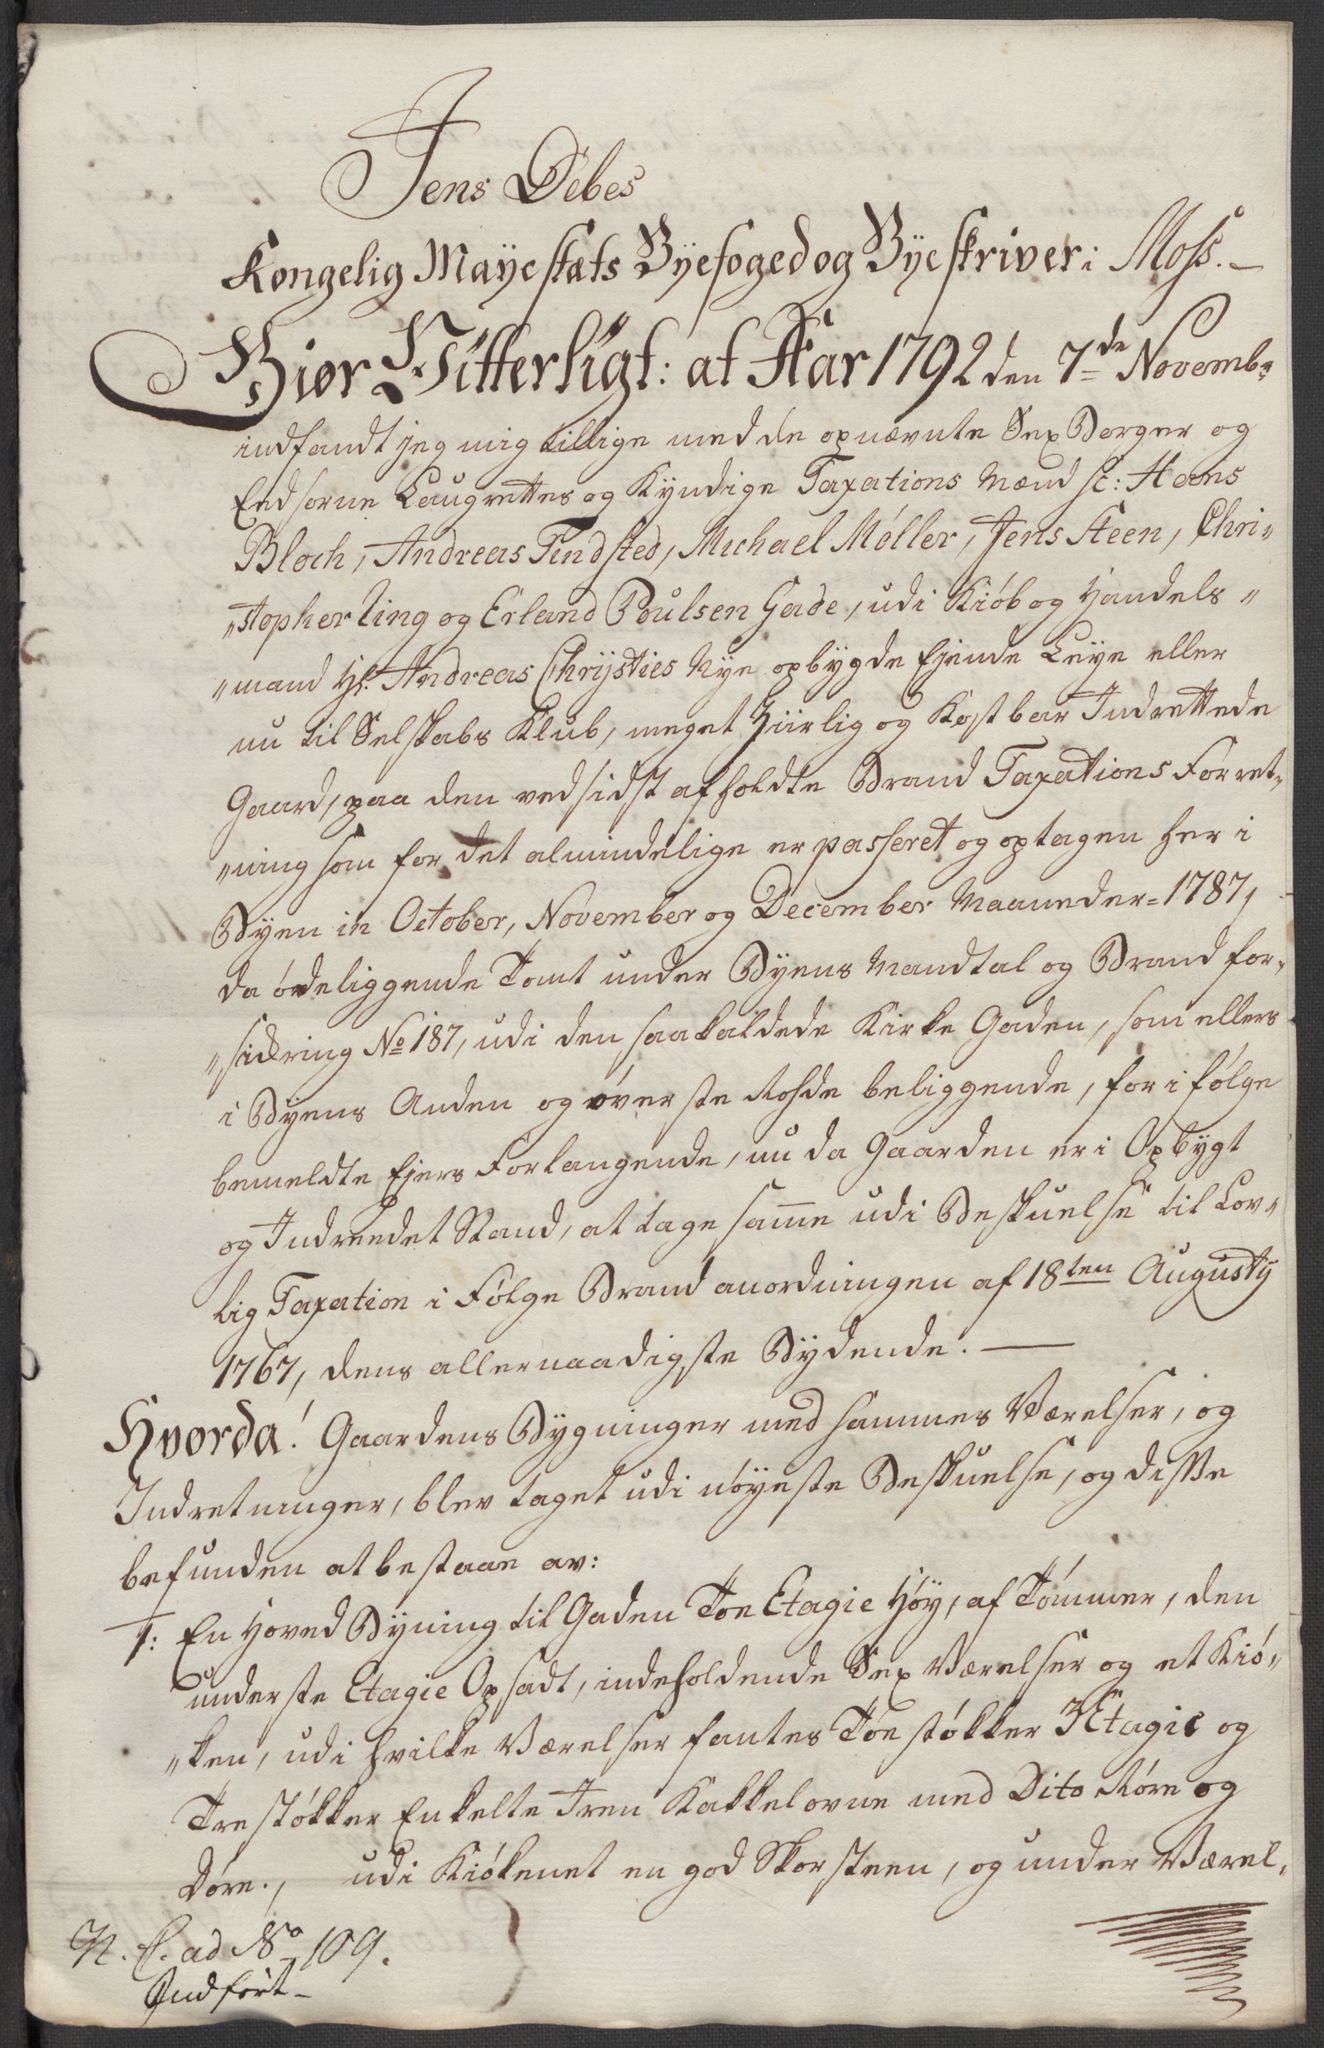 Jens Debes
Kongelig Mayestæts Byefoged og Byeskriver i Moss. —
Giør Vitterligt: at Aar 1792 den 7de Novembr
indfandt jeg mig tillige med de opnævnte Sex Borger og
Eedsorne Laugrettes og Kyndige Taxations Mænd sc: Hans
Bloch, Andreas Tindsted, Michael Møller, Jens Steen, Chri„
„stopher Ting og Erland Poulsen Gade, udi Kiøb og Handels„
„mand Hr. Andreas Chrijsties Nye opbygde Ejende Leye eller
nu til Selskabs Klub, meget Ziirlig og Kostbar Indrettede
Gaard, paa den ved sidst afholdte Brand Taxations Forret„
„ning som for det almindelige er passeret og optagen her i
Byen in October, November og December Maaneder 1787,
da ødeliggende Tomt under Byens Mandtal og Brand for„
„sicering No 187, udi den saakaldede Kirke Gaden, som ellers
i Byens Anden og øverste Rohde beliggende, for i følge
bemeldte Ejers Forlangende, nu da Gaarden er i Opbygt
og Indreedet Stand, at tage samme udi Beskuelse til Lov„
lig Taxation i Følge Brand anordningen af 18ten Augusty
1767, dens allernaadigste Bydende. —
Hvorda! Gaardens Bygninger med sammes Værelser, og
Indretninger, blev taget udi nøyeste Beskuelse, og disse
befunden at bestaae av:
1: En Hoved Byning til Gaden Toe Etagie Høy, af Tømmer, den
underste Etagie Opsadt, indeholdende Sex Værelser og et Kiø„
„ken, udi hvilke Værelser fantes Toe støkker 3 Etagie og
Tre støkker Enkelte Iern Kakkelovne med Dito Røre og
Døre., udi Kiøkenet en god Skorsteen, og under Værel„
N. C. ad No 109.
Indført